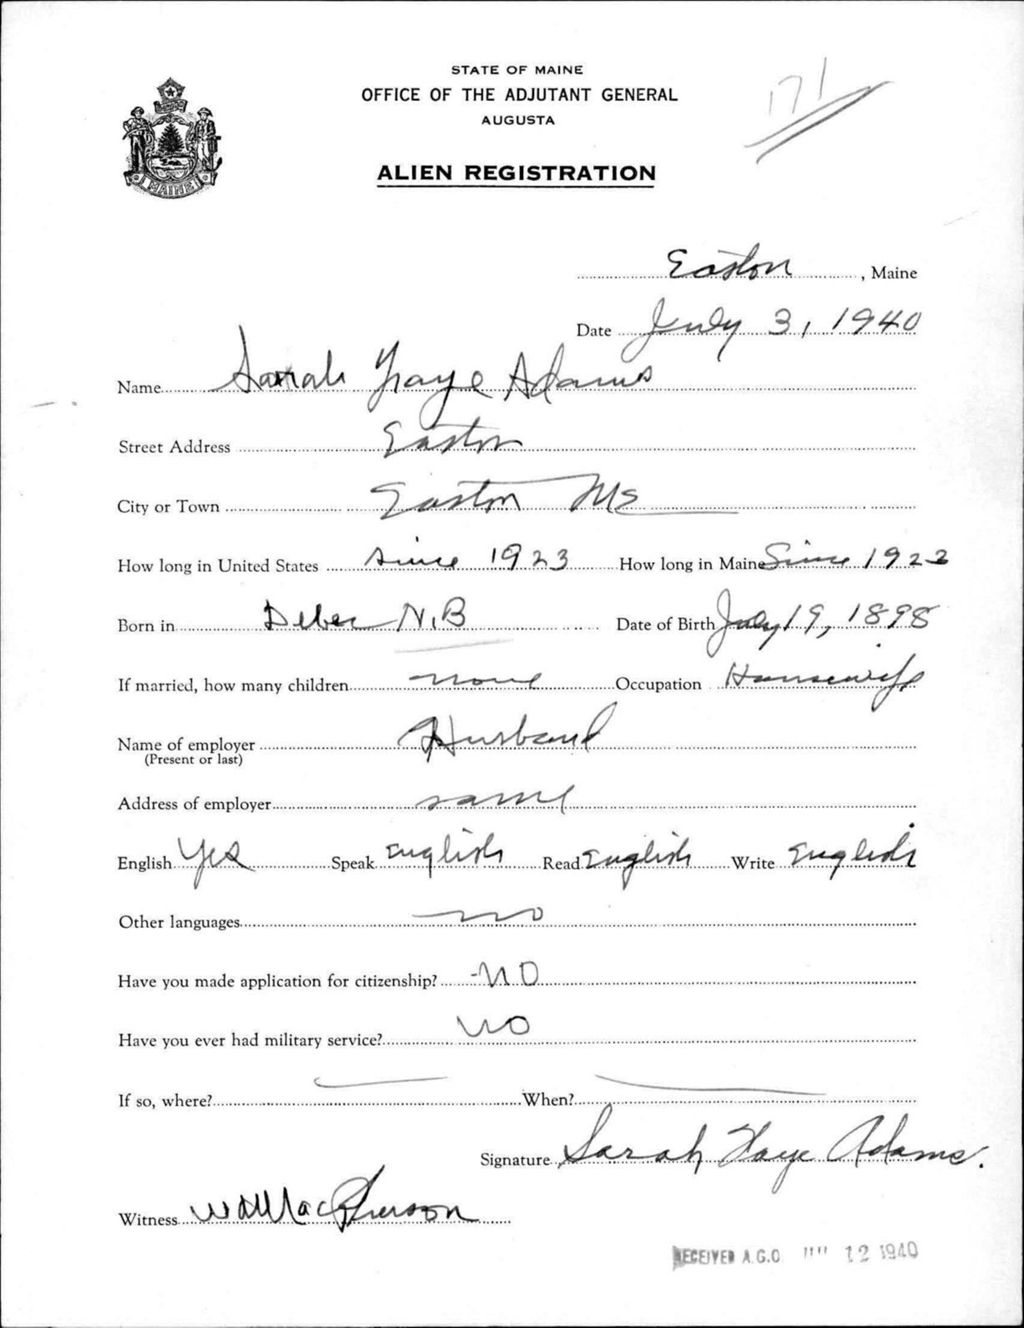 171
STATE OF MAINE
OFFICE OF THE ADJUTANT GENERAL
AUGUSTA
ALIEN REGISTRATION
MAINE
Easton, Maine
Date July 3, 1940
Name Sarah Faye Adams
Street Address Easton
City or Town Easton Me
How long in United States since 1923 How long in Maine Since 1923
Born in Debec N.B Date of Birth July 19, 1898
If married, how many children none Occupation Housewife
Name of employer Husband
(Present or last)
Address of employer same
English Yes Speak English Read English Write English
Other languages no
Have you made application for citizenship? NO
Have you ever had military service? NO
If so, where? When?
Signature Sarah Faye Adams.
Witness MacPherson
RECEIVED A.G.O 12 1940